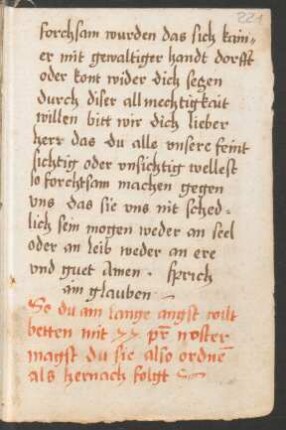 221
forchsam wurden das sich kain-
er mit gewaltiger handt dorfft
oder kont wider dich setzen
durch diser allmechtigkait
willen bitt wir dich lieber
herr das du alle vnsere feint
sichtig oder vnsichtig wellest
so forchtsam machen gegen
vns das sie vns nit sched-
lich sein mogen weder an seel
oder an leib weder an ere
vnd guet Amen . sprich
ain glauben
So du am lange angst wilt
betten mit pr̄ noster
magst du sie also ordnē
als hernach folgt